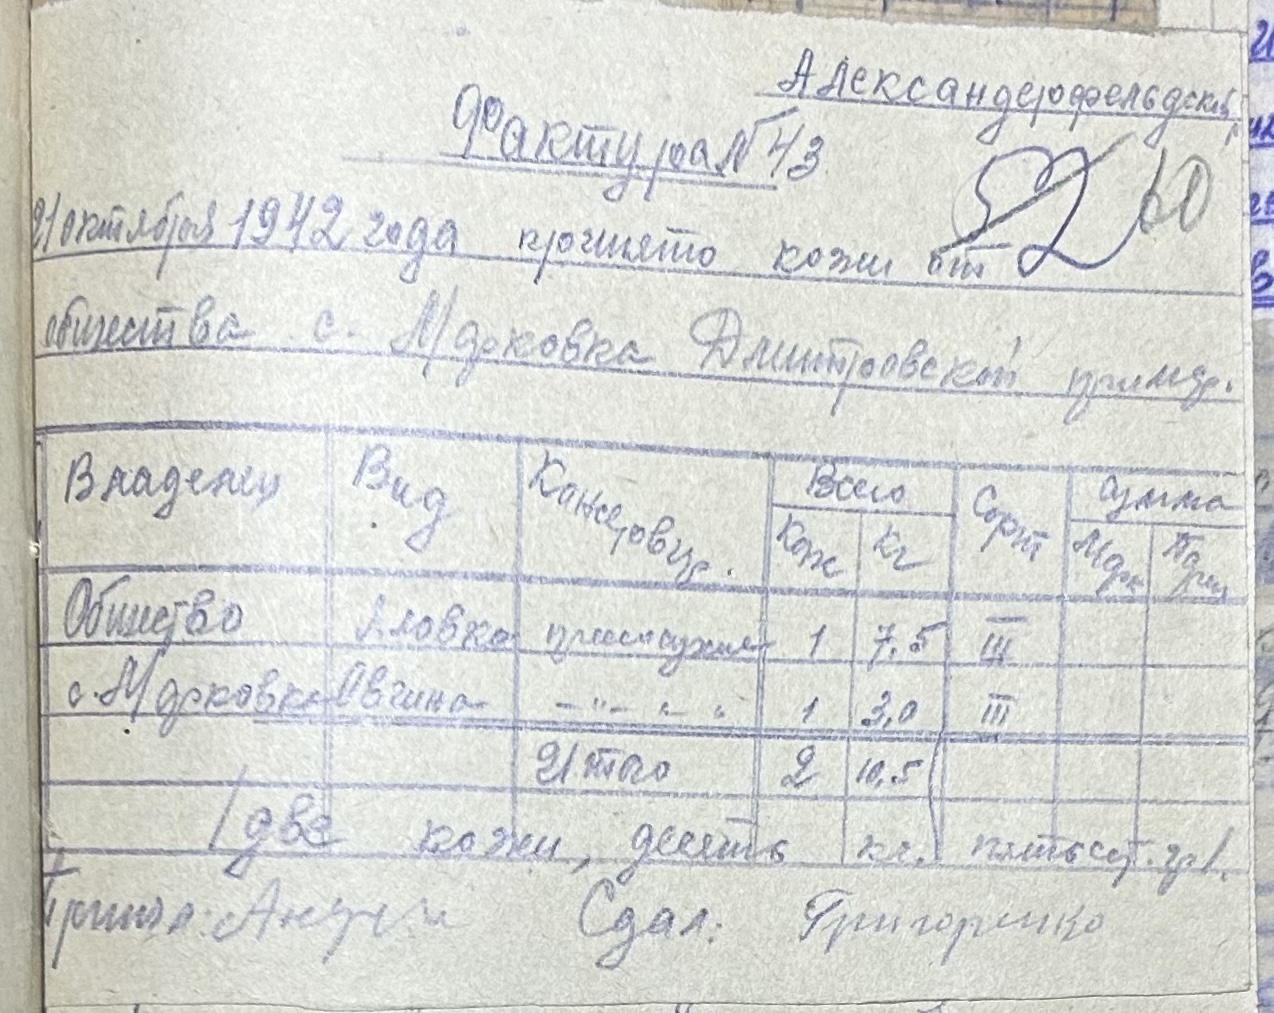 Александерфельдский
Фактура № 43
52 60
21 октября 1942 года принято кожи от
общества с. Марковка Дмитровской примэр.
Владелец Вид Консервир. Всего Сорт Сумма
Кож Кг Марк Пфен
Общество Яловка пресносухая 1 7,5 III
с. Марковка Овчина -"- "- " 1 3,0 III
Итого 2 10,5
/две кожи, десять кг. пятьсот гр/.
Принял: Сдал: Григоренко